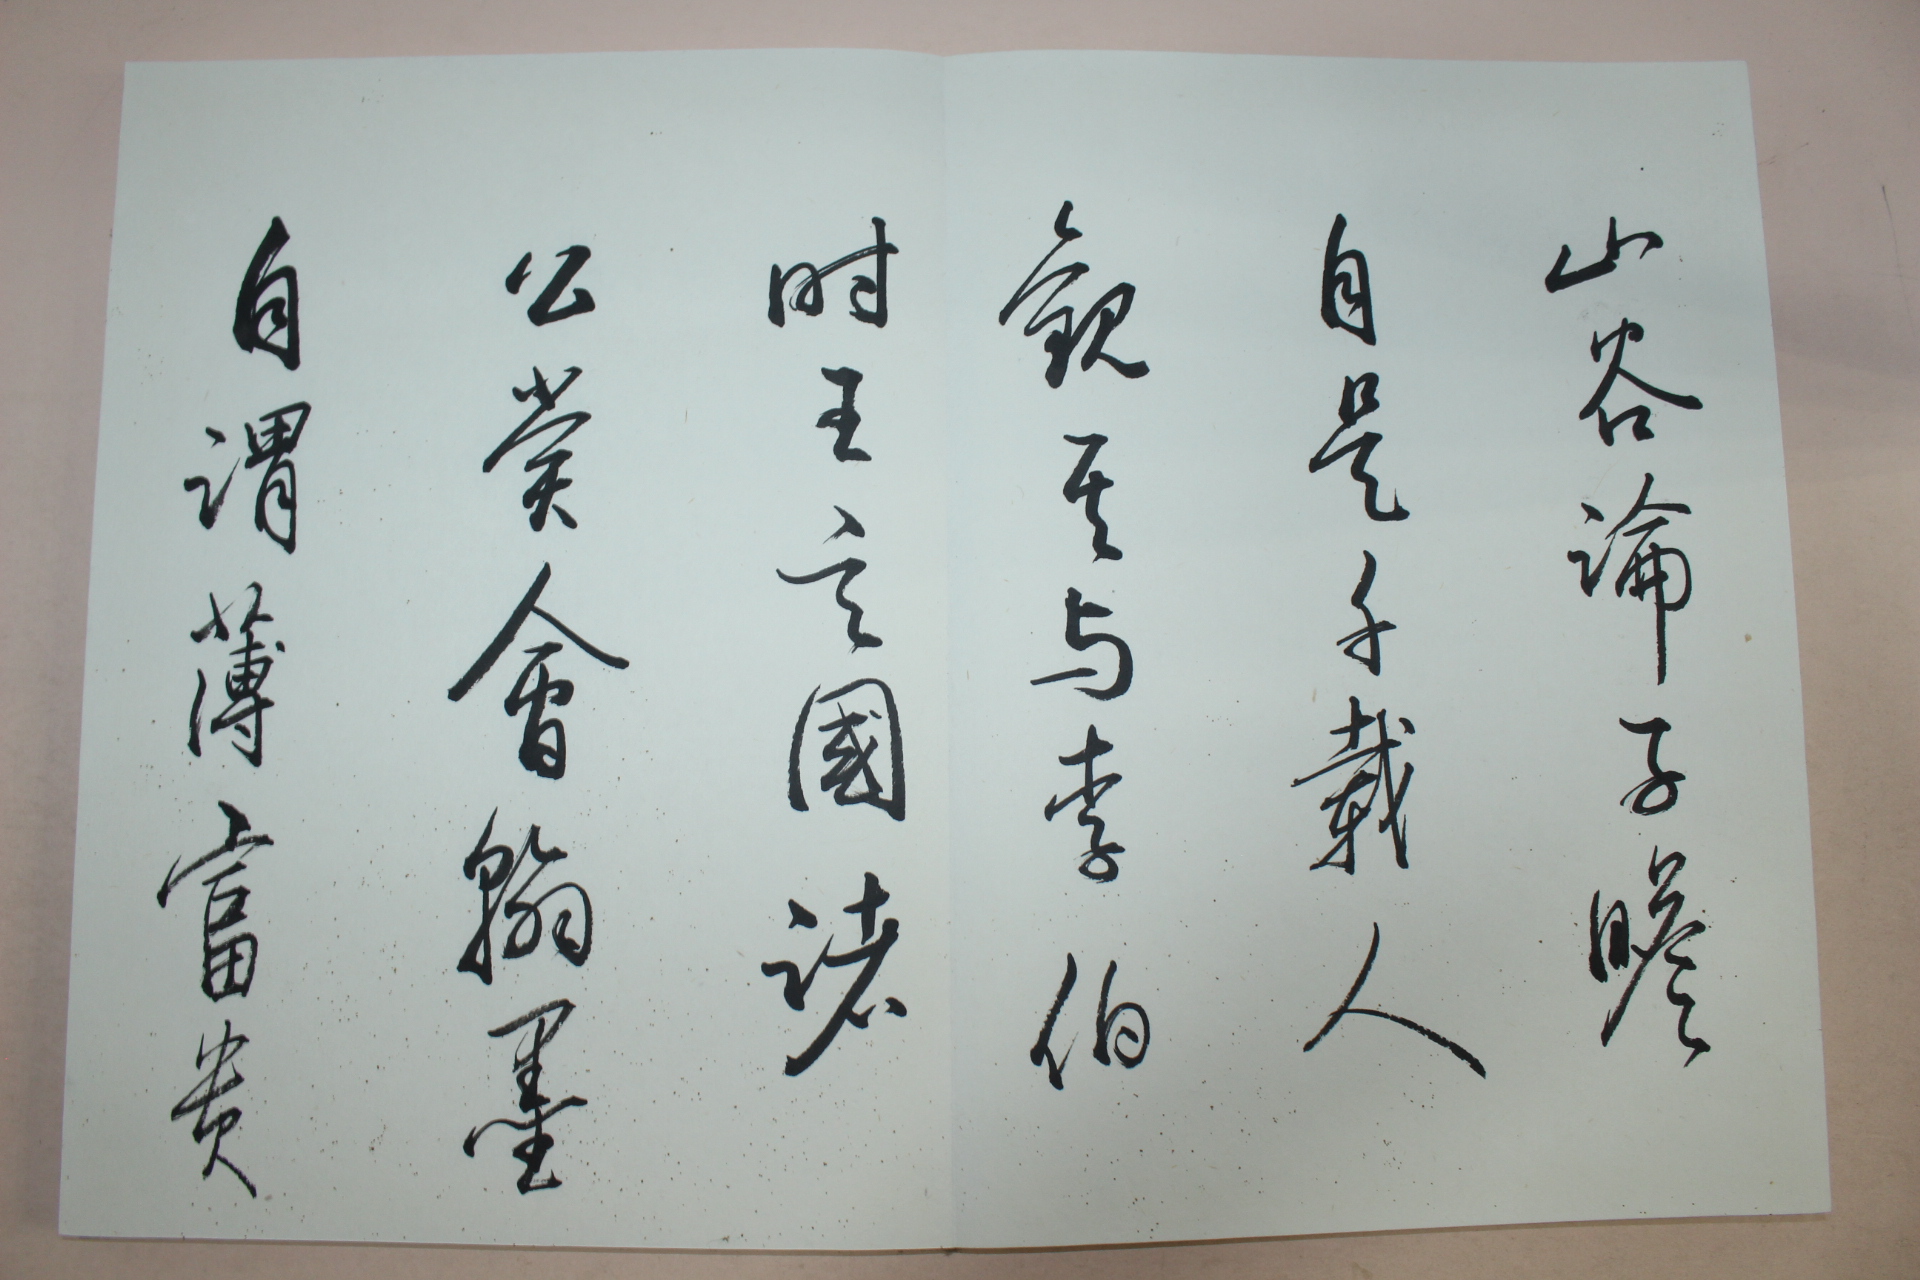 山谷論子瞻
自是千載人
觀其与李伯
时王定國諸
公賞會翰墨
自謂薄富貴